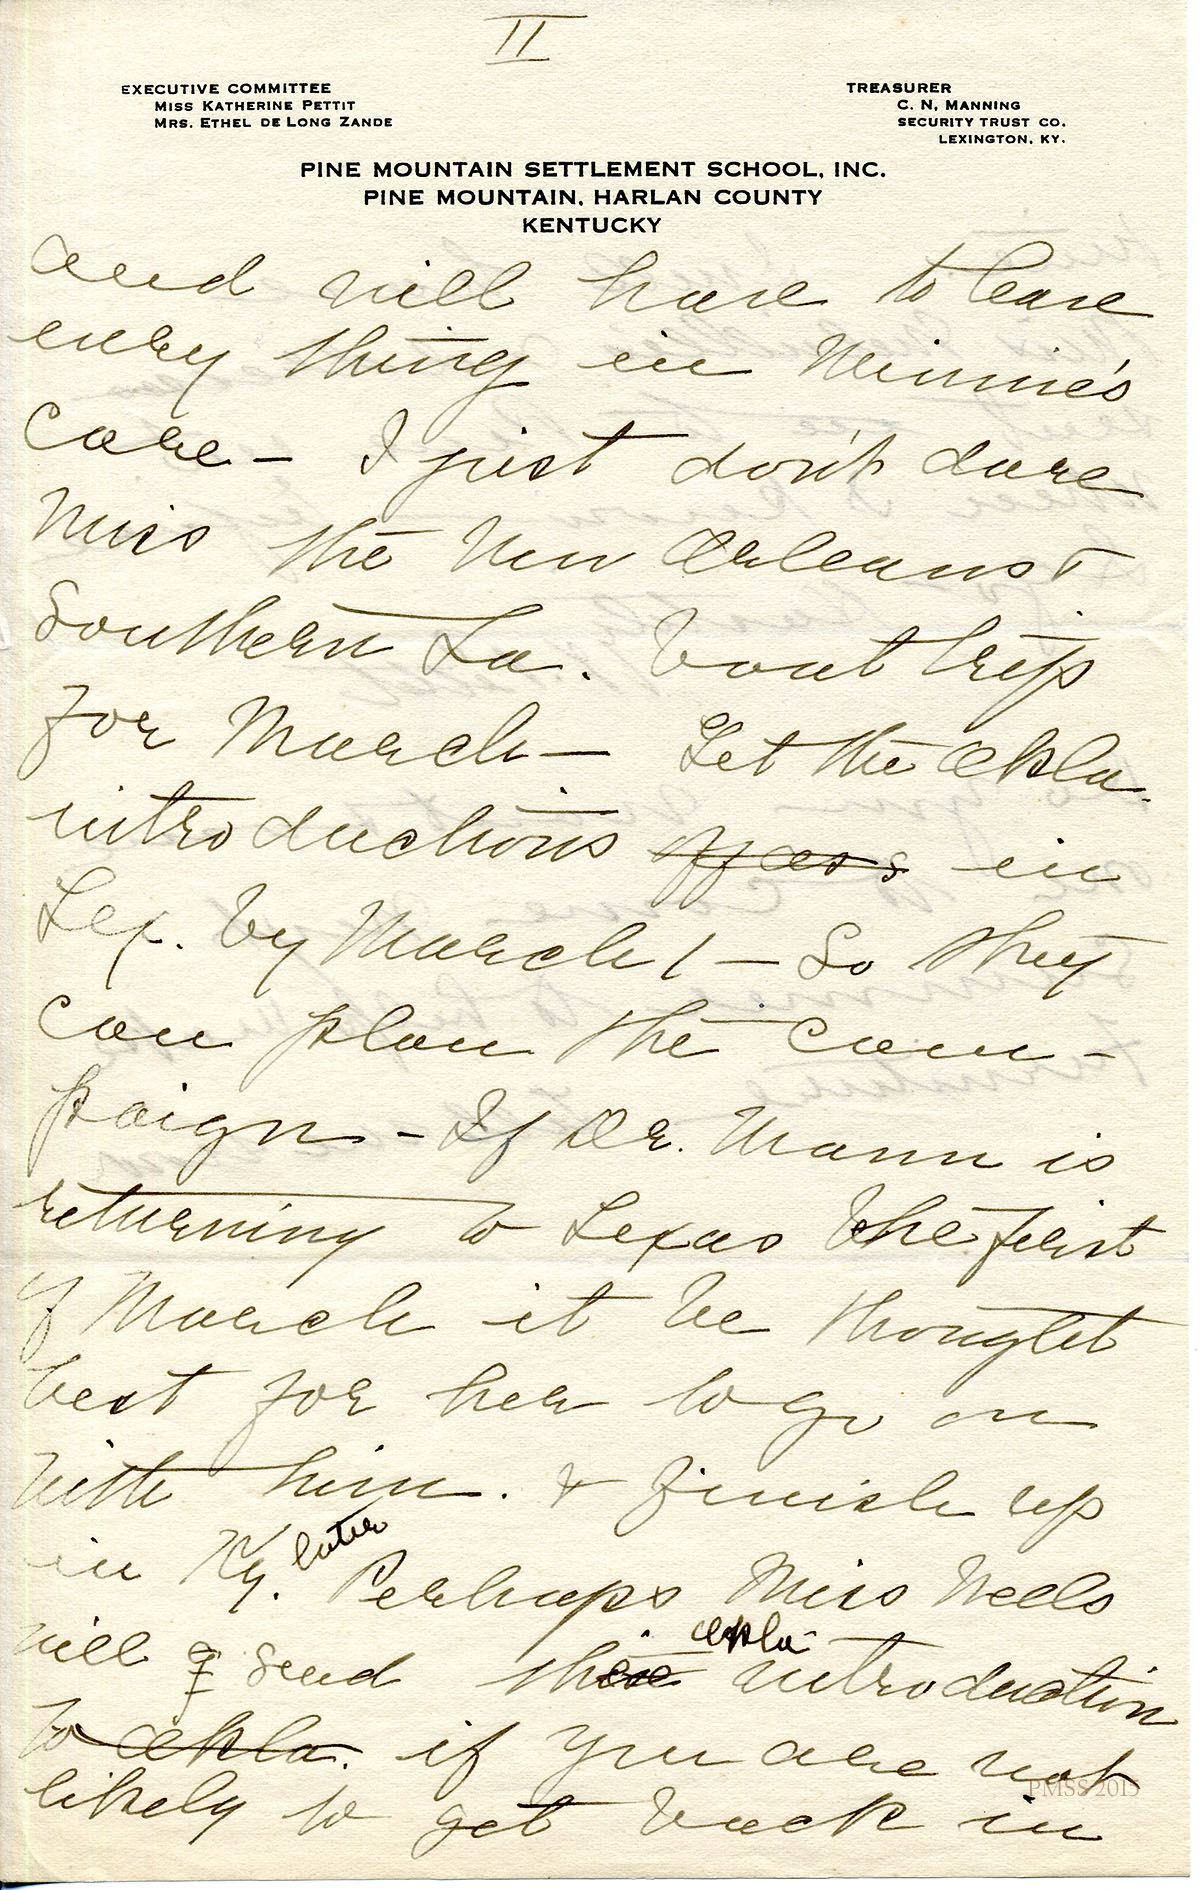 II
EXECUTIVE COMMITTEE
MISS KATHERINE PETTIT
MRS. ETHEL DE LONG ZANDE
TREASURER
C. N. MANNING
SECURITY TRUST CO.
LEXINGTON, KY.
PINE MOUNTAIN SETTLEMENT SCHOOL, INC.
PINE MOUNTAIN, HARLAN COUNTY
KENTUCKY
and will have to leave
every thing in Minnie's
care – I just don't dare
miss the New Orleans &
Southern La. boat trip
for March – Get the Okla.
introductions in
Lex. by March 1 – So they
can plan the cam-
paign – If Dr. Mann is
returning to Texas the first
of March it be thought
best for her to go on
with him. & finish up
in Ky. later Perhaps Miss Wells
will send the Okla introduction
to Okla. if you are not
likely to get back in
PMSS 2015